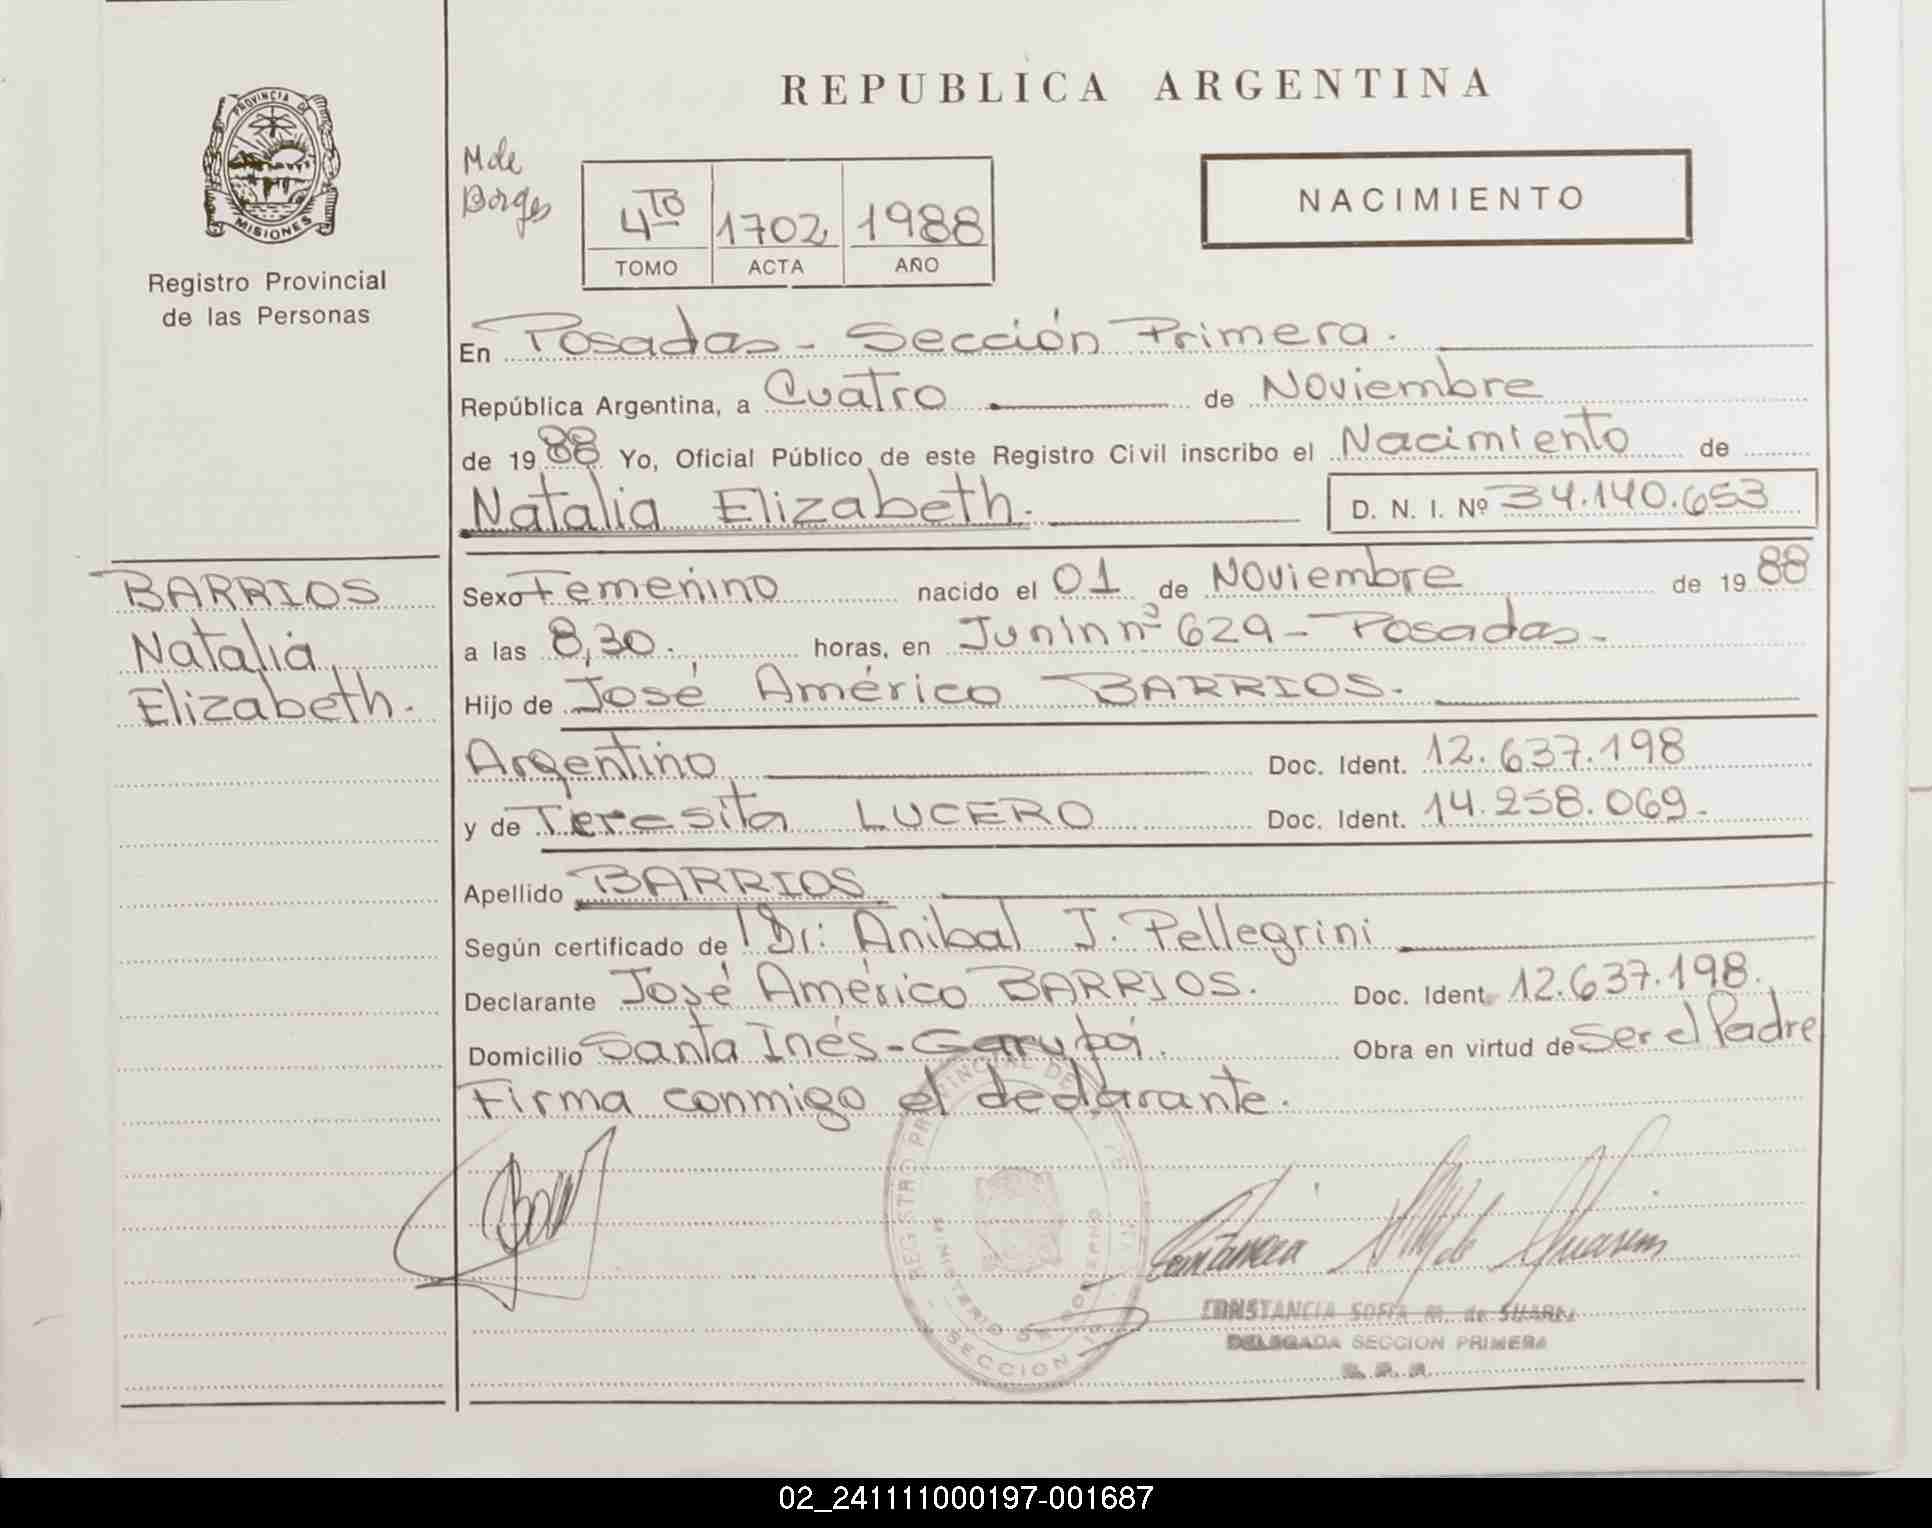 REPUBLICA ARGENTINA
PROVINCIA DE
MISIONES
Registro Provincial
de las Personas
M de
Borges
4TO 1702 1988
TOMO ACTA AÑO
NACIMIENTO
En Posadas - Sección Primera.
República Argentina, a Cuatro de Noviembre
de 1988 Yo, Oficial Público de este Registro Civil inscribo el Nacimiento de
Natalia Elizabeth. D. N. I. Nº 34.140.653
BARRIOS
Natalia
Elizabeth.
Sexo Femenino nacido el 01 de Noviembre de 1988
a las 8,30. horas, en Junín nº 629 - Posadas -
Hijo de José Américo BARRIOS.
Argentino Doc. Ident. 12.637.198
y de Teresita LUCERO Doc. Ident. 14.258.069.
Apellido BARRIOS
Según certificado de Dr: Anibal J. Pellegrini
Declarante José Américo BARRIOS. Doc. Ident. 12.637.198.
Domicilio Santa Inés - Garupá. Obra en virtud de Ser el Padre
Firma conmigo el declarante.
REGISTRO PROVINCIAL DE
MINISTERIO DE GOBIERNO
SECCION
CONSTANCIA SOFIA M. de SUAREZ
DELEGADA SECCION PRIMERA
02_241111000197-001687